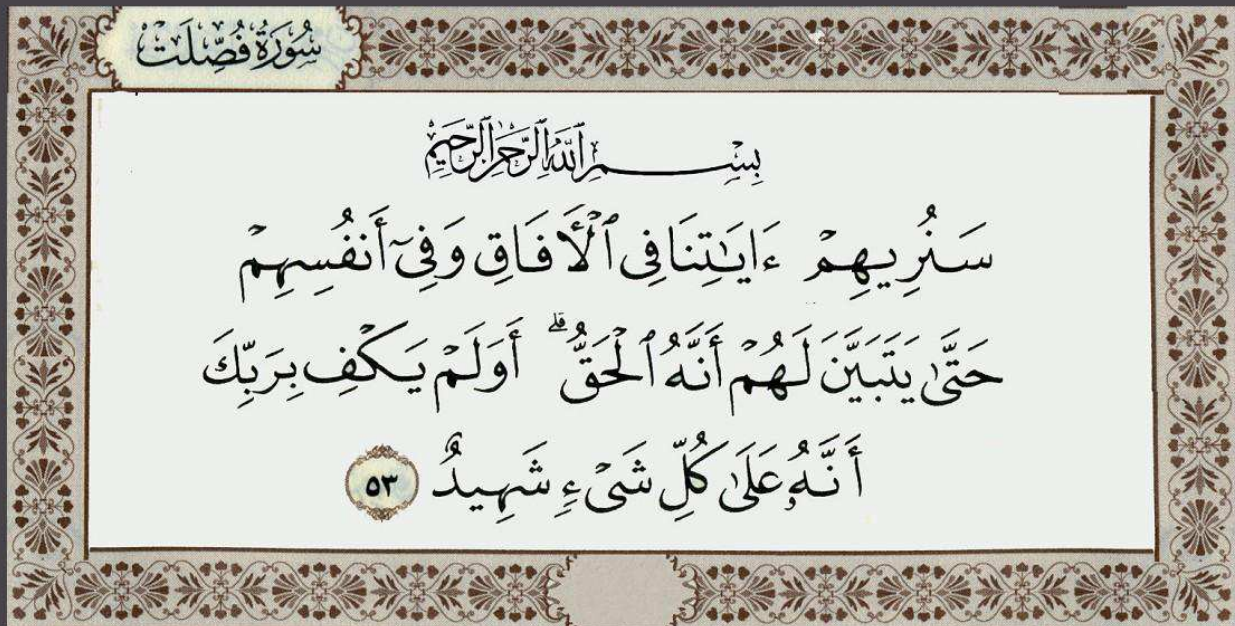 سُورَةُ فُصِّلَتْ
بِسْمِ ٱللَّهِ ٱلرَّحْمَٰنِ ٱلرَّحِيمِ
سَنُرِيهِمْ ءَايَٰتِنَا فِى ٱلْأَفَاقِ وَفِىٓ أَنفُسِهِمْ
حَتَّىٰ يَتَبَيَّنَ لَهُمْ أَنَّهُ ٱلْحَقُّ ۗ أَوَلَمْ يَكْفِ بِرَبِّكَ
أَنَّهُۥ عَلَىٰ كُلِّ شَىْءٍ شَهِيدٌ ٥٣